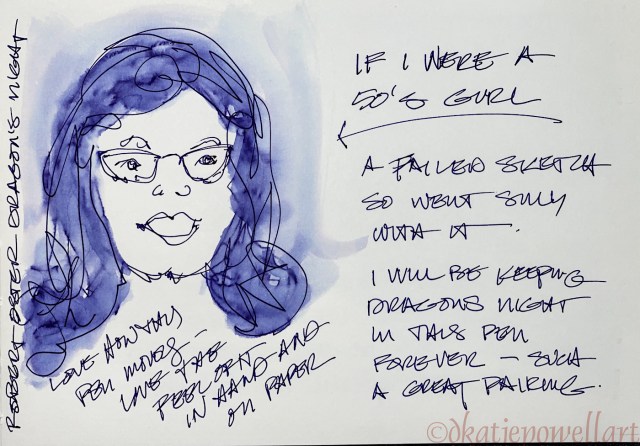 ROBERT OSTER DRAGON'S NIGHT
IF I WERE A
50'S GURL
A FAILED SKETCH
SO WENT SILLY
WITH IT.
I WILL BE KEEPING
DRAGONS NIGHT
IN THIS PEN
FOREVER — SUCH
A GREAT PAIRING.
LOVE HOW THIS
PEN MOVES —
LOVE THE
FEEL OF IT
IN HAND AND
ON PAPER
©dkatiepowellart